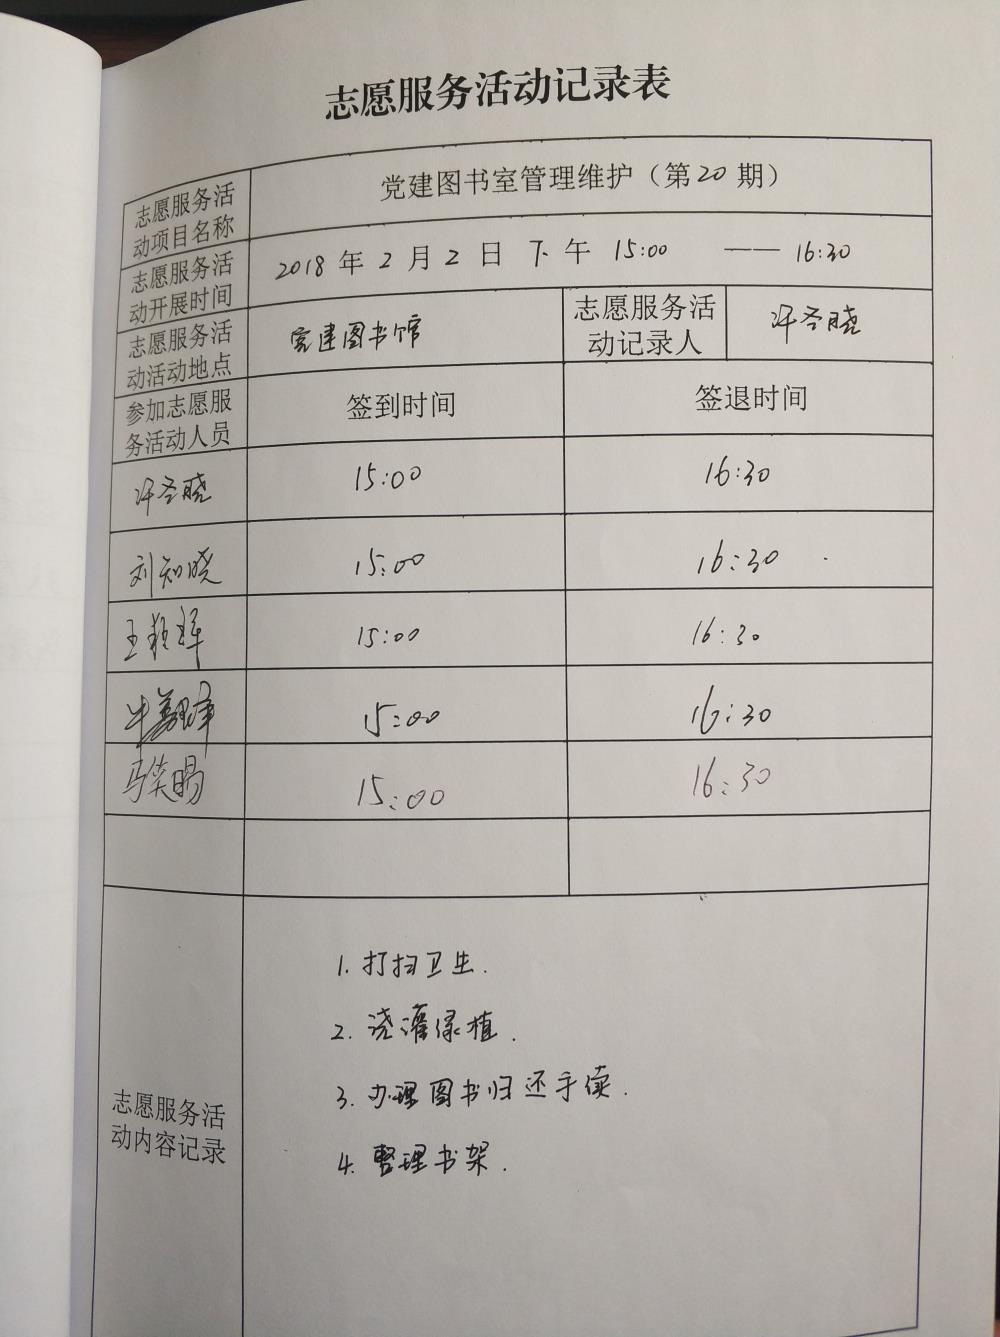 志愿服务活动记录表
志愿服务活
动项目名称
党建图书室管理维护（第20期）
志愿服务活
动开展时间
2018年2月2日下午15:00——16:30
志愿服务活
动活动地点
党建图书馆
志愿服务活
动记录人
许圣晓
参加志愿服
务活动人员
签到时间
签退时间
许圣晓
15:00
16:30
刘知晓
15:00
16:30
15:00
16:30
15:00
16:30
马笑旸
15:00
16:30
志愿服务活
动内容记录
1.打扫卫生.
2.浇灌绿植.
3.办理图书归还手续.
4.整理书架.